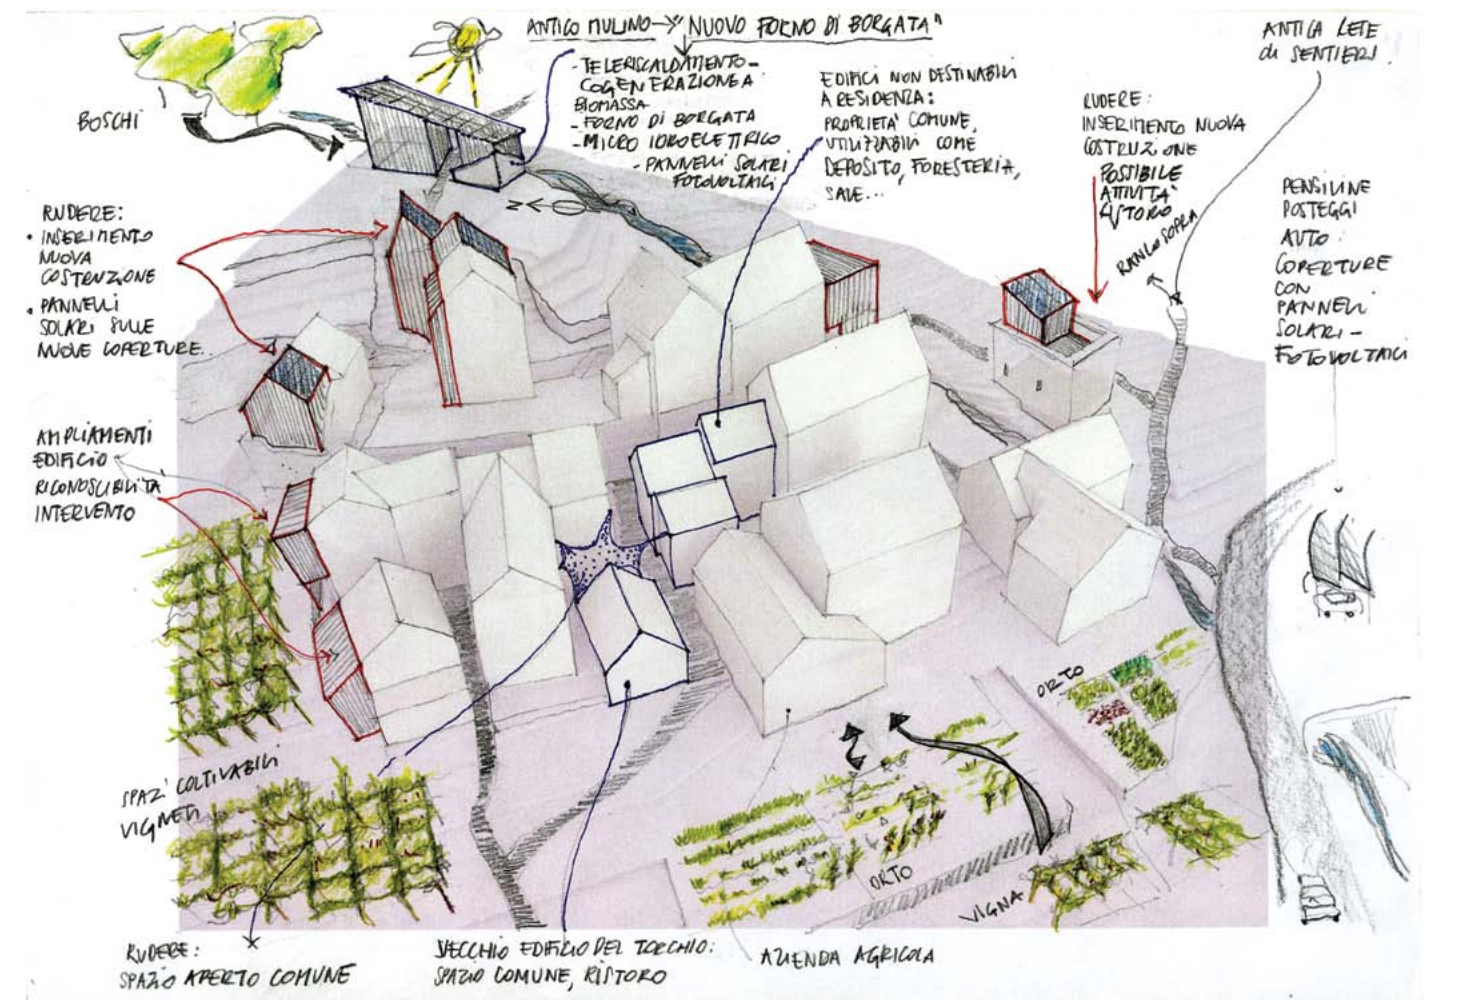 ANTICO MULINO → "NUOVO FORNO DI BORGATA"
- TELERISCALDAMENTO -
COGENERAZIONE A
BIOMASSA
- FORNO DI BORGATA
- MICRO IDROELETTRICO
- PANNELLI SOLARI
FOTOVOLTAICI
BOSCHI
EDIFICI NON DESTINABILI
A RESIDENZA:
PROPRIETA' COMUNE,
UTILIZZABILI COME
DEPOSITO, FORESTERIA,
SALE...
ANTICA RETE
di SENTIERI
RUDERE:
INSERIMENTO NUOVA
COSTRUZIONE
POSSIBILE
ATTIVITA'
RISTORO
RANLO SOPRA
PENSILINE
POSTEGGI
AUTO:
COPERTURE
CON
PANNELLI
SOLARI -
FOTOVOLTAICI
RUDERE:
• INSERIMENTO
NUOVA
COSTRUZIONE
• PANNELLI
SOLARI SULLE
NUOVE COPERTURE..
N
AMPLIAMENTI
EDIFICIO
RICONOSCIBILITÀ
INTERVENTO
ORTO
SPAZI COLTIVABILI
VIGNETI
ORTO
VIGNA
RUDERE:
SPAZIO APERTO COMUNE
VECCHIO EDIFICIO DEL TORCHIO:
SPAZIO COMUNE, RISTORO
AZIENDA AGRICOLA